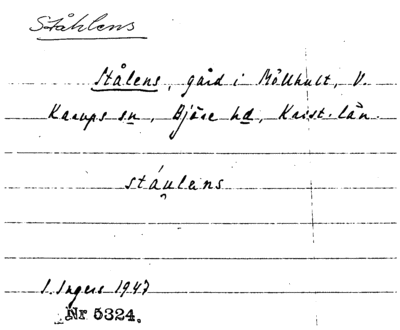 Ståhlens
Stålens, gård i Böllhult, V.
Karups sn, Bjäre hd, Krist. län.
stáulens
I. Ingers 1947
Nr 5324.